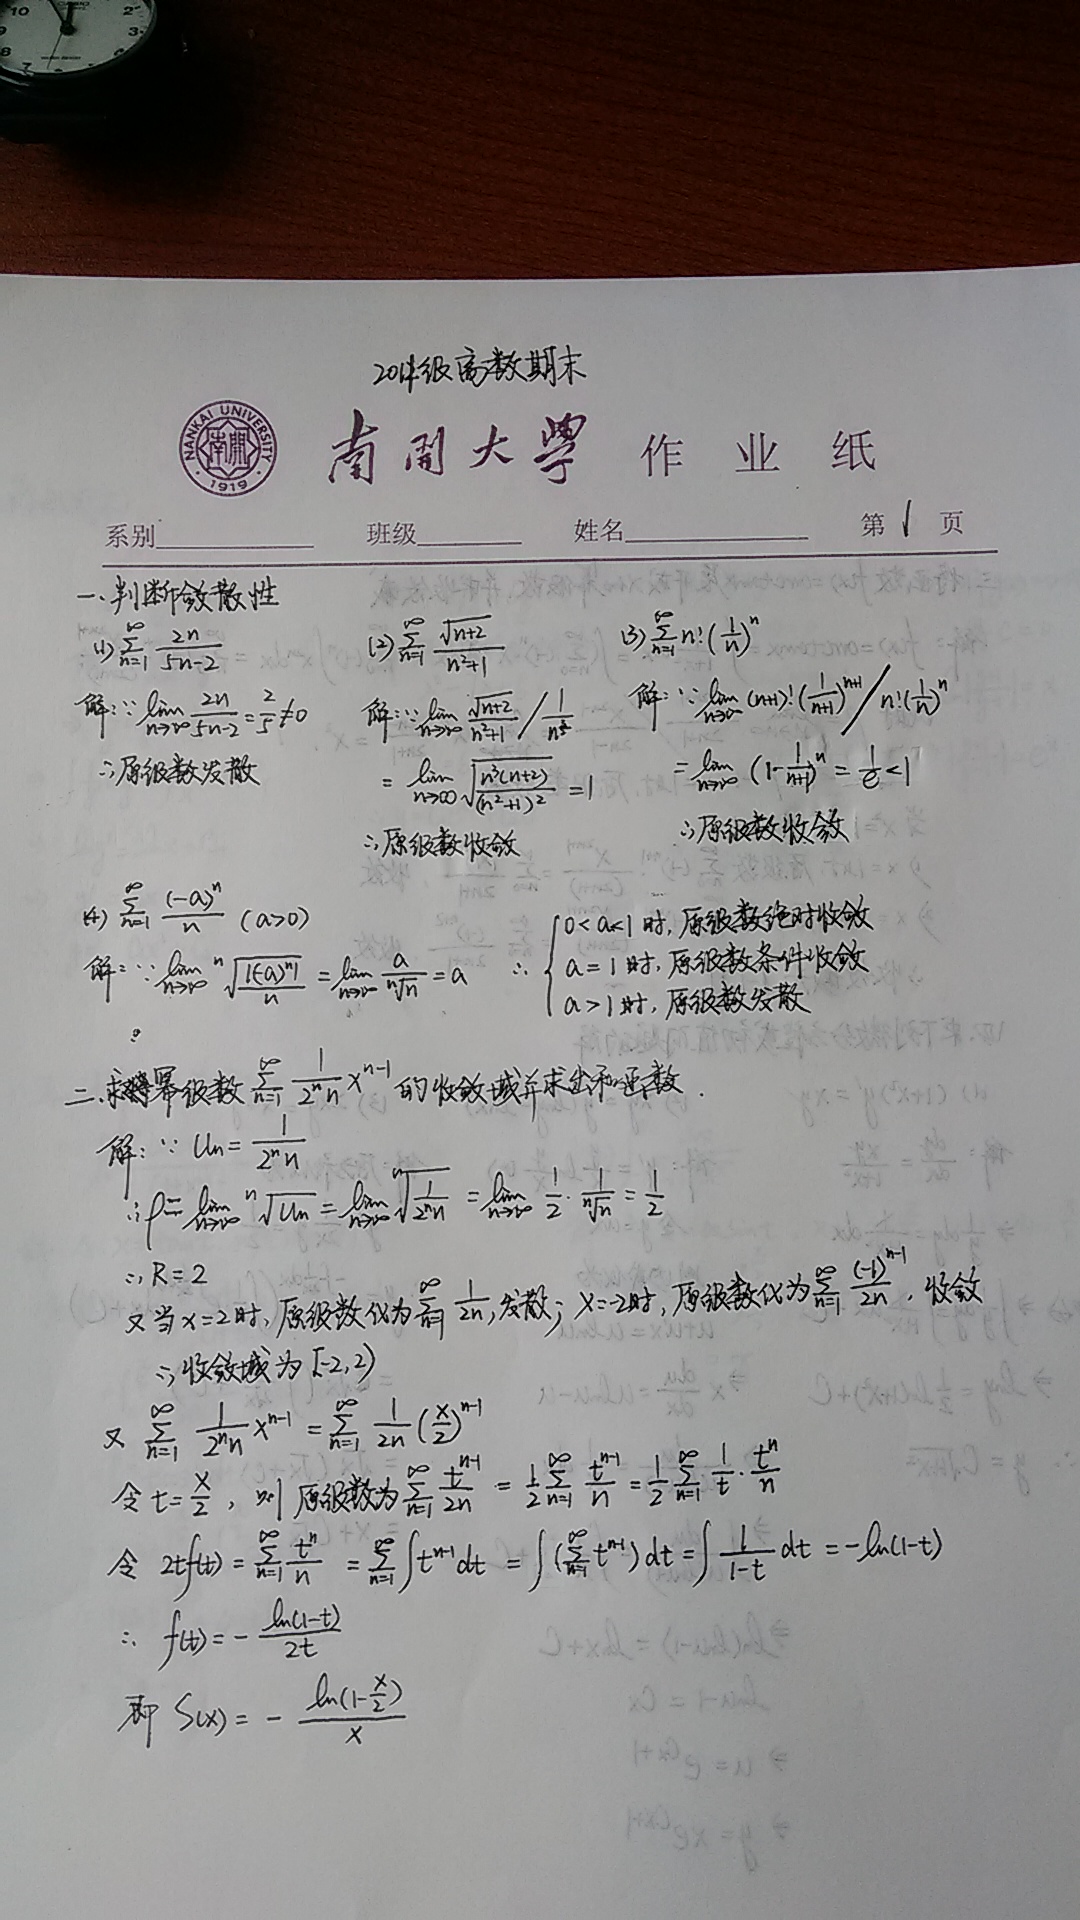 2014级高数期末
NANKAI UNIVERSITY
1919
南開大學 作业纸
系别 班级 姓名 第1页
一、判断敛散性
(1) ∑_{n=1}^{∞} 2n/(5n-2) (2) ∑_{n=1}^{∞} √(n+2)/(n²+1) (3) ∑_{n=1}^{∞} n!·(1/n)^n
解:∵ lim_{n→∞} 2n/(5n-2) = 2/5 ≠ 0
∴原级数发散
解:∵ lim_{n→∞} √(n+2)/(n²+1) / 1/n^{3/2}
= lim_{n→∞} √(n³(n+2)/(n²+1)²) = 1
∴原级数收敛
解:∵ lim_{n→∞} (n+1)!·(1/(n+1))^{n+1} / n!·(1/n)^n
= lim_{n→∞} (1-1/(n+1))^n = 1/e < 1
∴原级数收敛
(4) ∑_{n=1}^{∞} (-a)^n/n (a>0)
解:∵ lim_{n→∞} ⁿ√(|(-a)^n|/n) = lim_{n→∞} a/ⁿ√n = a
∴ { 0<a<1时,原级数绝对收敛
a=1时,原级数条件收敛
a>1时,原级数发散
二、求幂级数 ∑_{n=1}^{∞} 1/(2^n n) x^{n-1} 的收敛域并求出和函数.
解:∵ Un = 1/(2^n n)
∴ρ = lim_{n→∞} ⁿ√Un = lim_{n→∞} ⁿ√(1/(2^n n)) = lim_{n→∞} 1/2 · 1/ⁿ√n = 1/2
∴R=2
又当x=2时,原级数化为 ∑_{n=1}^{∞} 1/(2n),发散; x=-2时,原级数化为 ∑_{n=1}^{∞} (-1)^{n-1}/(2n),收敛
∴收敛域为[-2,2)
又 ∑_{n=1}^{∞} 1/(2^n n) x^{n-1} = ∑_{n=1}^{∞} 1/(2n) (x/2)^{n-1}
令 t=x/2,则原级数为 ∑_{n=1}^{∞} t^{n-1}/(2n) = 1/2 ∑_{n=1}^{∞} t^{n-1}/n = 1/2 ∑_{n=1}^{∞} 1/t · t^n/n
令 2tf(t) = ∑_{n=1}^{∞} t^n/n = ∑_{n=1}^{∞} ∫t^{n-1}dt = ∫(∑_{n=1}^{∞} t^{n-1})dt = ∫ 1/(1-t) dt = -ln(1-t)
∴ f(t) = - ln(1-t)/(2t)
即 S(x) = - ln(1-x/2)/x